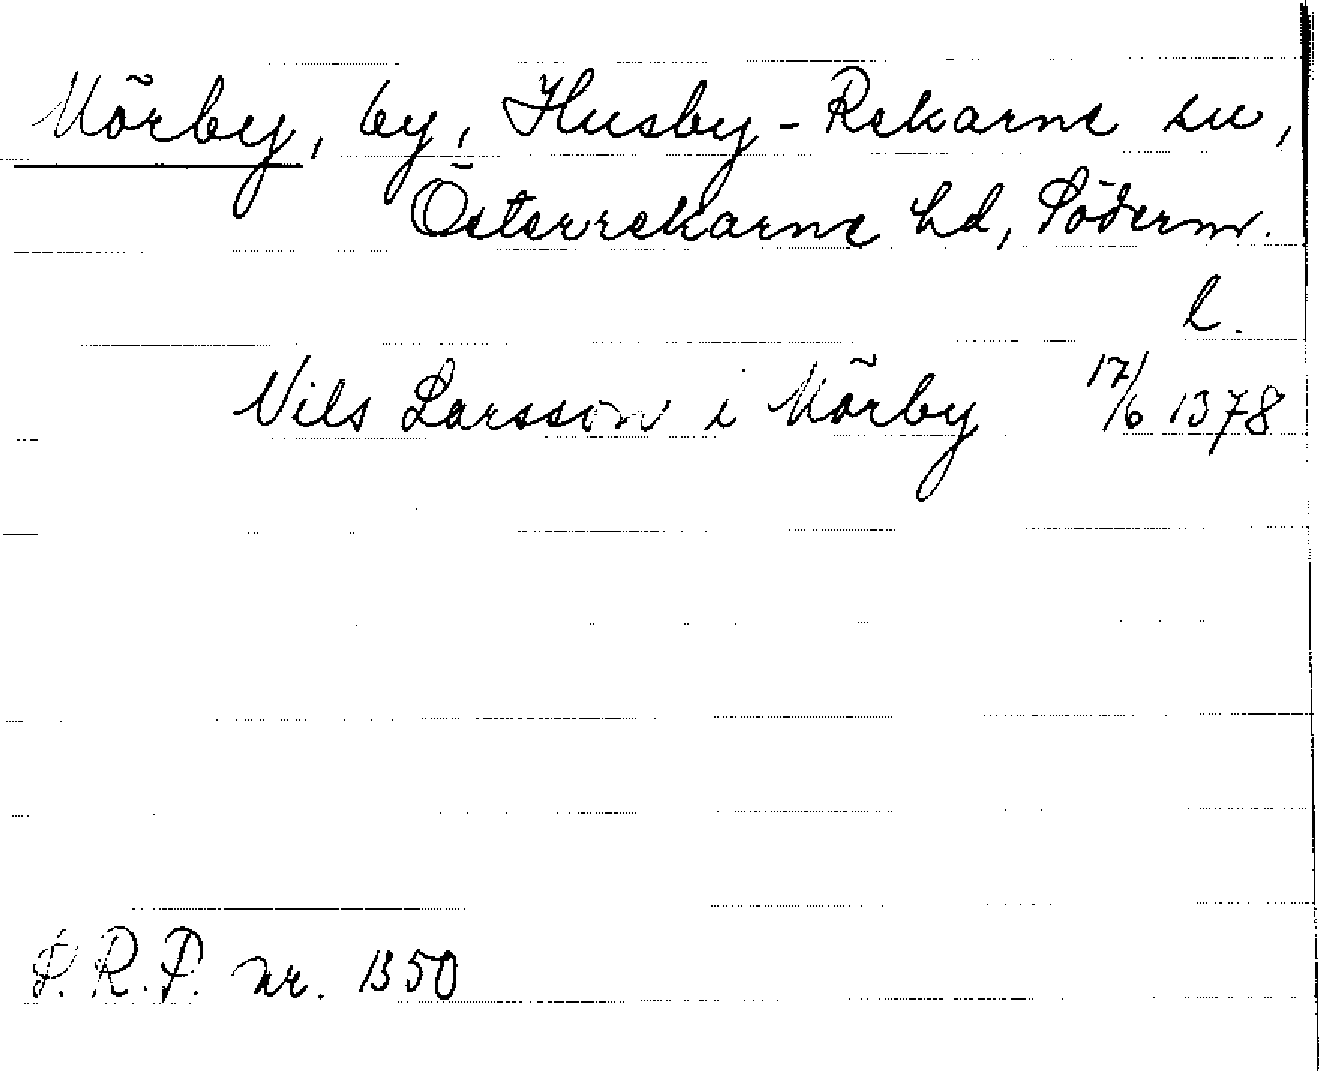 Mörby, by, Husby-Rekarne sn,
Österrekarne hd, Söderm.
l.
Nils Larsson i Mörby 17/6 1378
S.R.P. nr. 1350